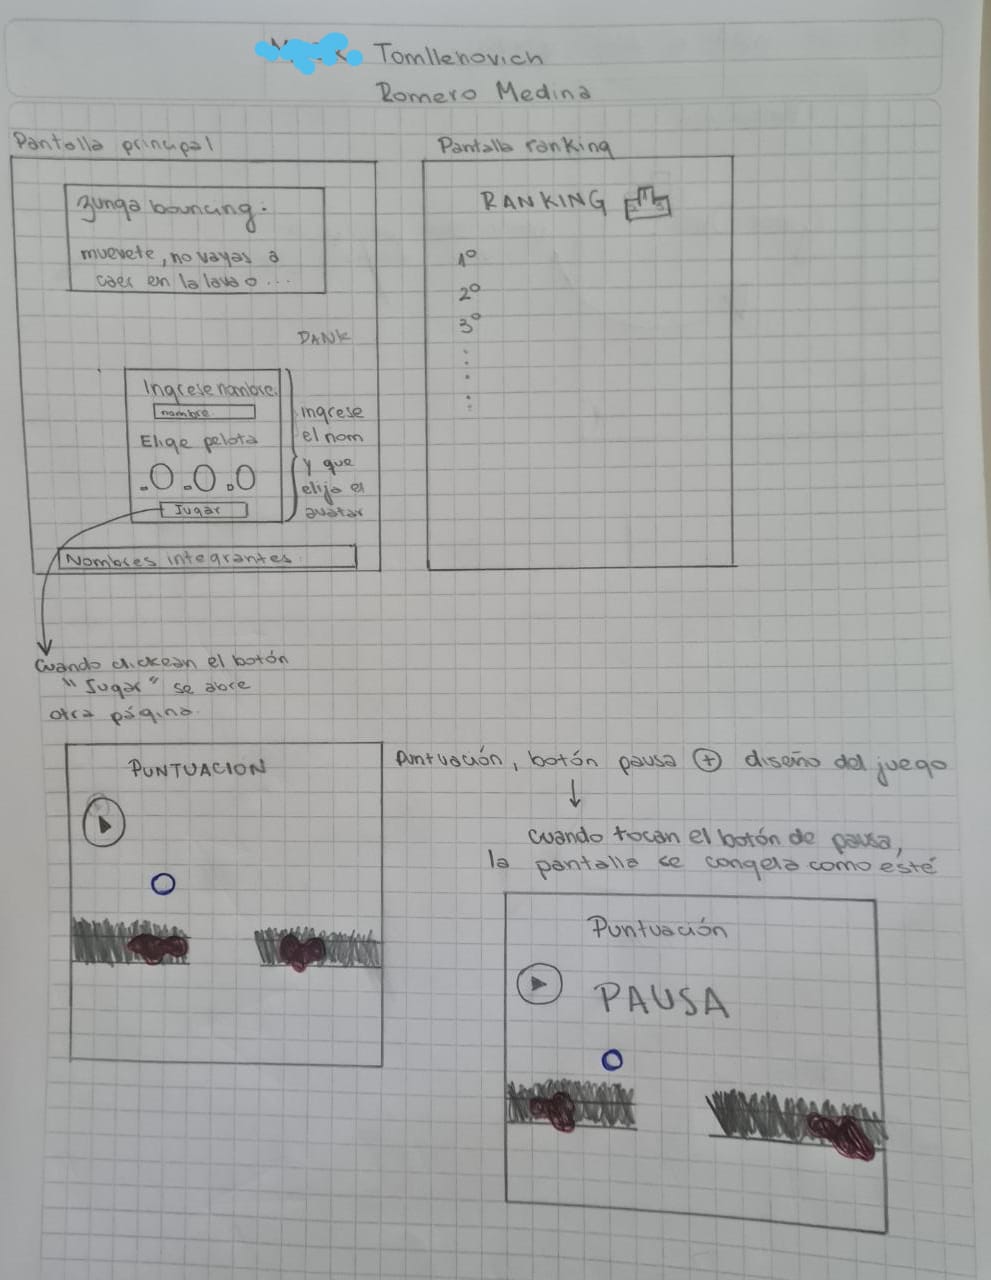 Tomllenovich
Romero Medina
Pantalla principal
Zunga bouncing.
muevete, no vayas a
caer en la lava o...
DANK
Ingrese nombre.
nombre
Elige pelota
Jugar
Ingrese
el nom
y que
elija el
avatar
Nombres integrantes.
Pantalla ranking
RANKING
1º
2º
3º
Cuando clickean el botón
"Jugar" se abre
otra página.
PUNTUACION
Puntuación, botón pausa + diseño del juego
cuando tocan el botón de pausa,
la pantalla se congela como esté
Puntuación
PAUSA